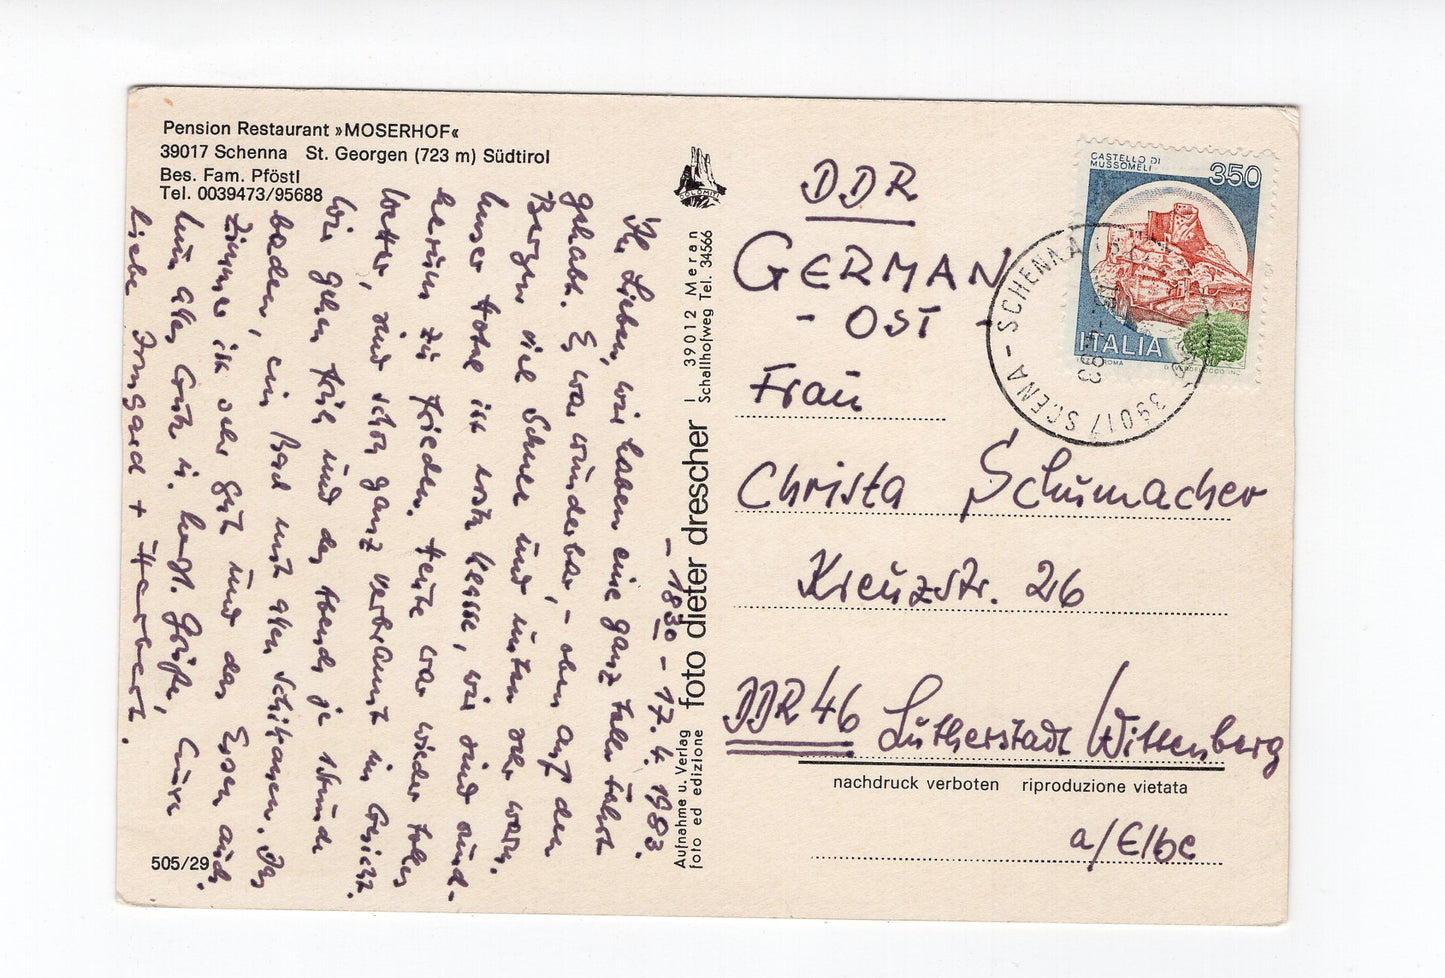 Pension Restaurant »MOSERHOF«
39017 Schenna St. Georgen (723 m) Südtirol
Bes. Fam. Pföstl
Tel. 0039473/95688
- 18.30 - 17. 4. 1983.
Ihr Lieben, wir haben eine ganz tolle Fahrt
gehabt. Es war wunderbar, - oben auf den
Bergen viel Schnee und unten sehr warm.
Unser Hotel ist erste Klasse, wir sind rund-
herum zufrieden. Heute war wieder tolles
Wetter, sind schon ganz verbrannt im Gesicht.
Wir gehen früh und des Abends je 1 Stunde
baden, ein Bad mit allen Schikanen. Das
Zimmer ist sehr gut und das Essen auch.
Nun alles Gute u. herzl. Grüße, Eure
liebe Irmgard + Herbert.
505/29
DOLOMITI
I 39012 Meran
Schallhofweg Tel. 34566
foto dieter drescher
Aufnahme u. Verlag
foto ed edizione
CASTELLO DI
MUSSOMELI
350
ITALIA
ROMA
39017 SCENA - SCHENNA
DDR
GERMAN
- OST -
Frau
Christa Schumacher
Kreuzstr. 26
DDR 46 Lutherstadt Wittenberg
nachdruck verboten riproduzione vietata
a/Elbe